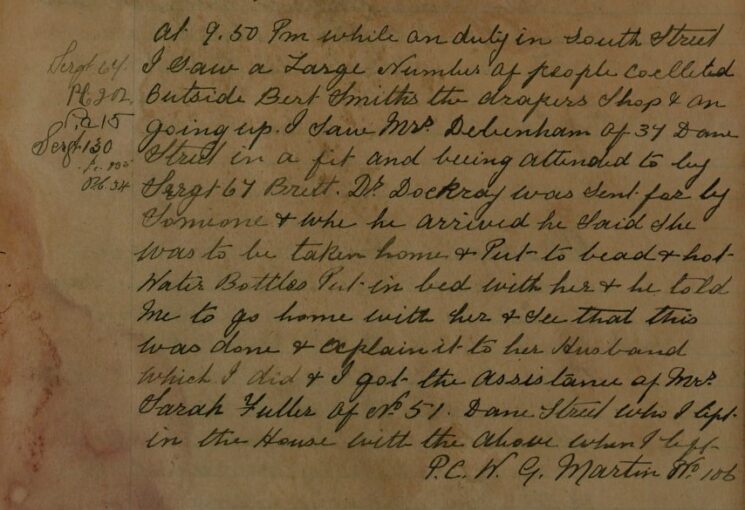 at 9.50 Pm while on duty in South Street
I Saw a Large Number of people coelleted
Outside Bert Smiths the drapers Shop & on
going up. I Saw Mrs. Debenham of 37 Dane
Street in a fit and being attended to by
Sergt 67 Brett. Dr. Dockray was Sent for by
Someone & whe he arrived he Said She
was to be taken home & Put to bead & hot
Water Bottles Put in bed with her & he told
Me to go home with her & See that this
was done & explain it to her Husband
which I did & I got the assistance of Mrs
Sarah Fuller of No 51. Dane Street who I left
in the House with the above when I left
P.C. W. G. Martin No 106
Sergt 67
PC 202
P.C 15
Sergt 130
PC. 34